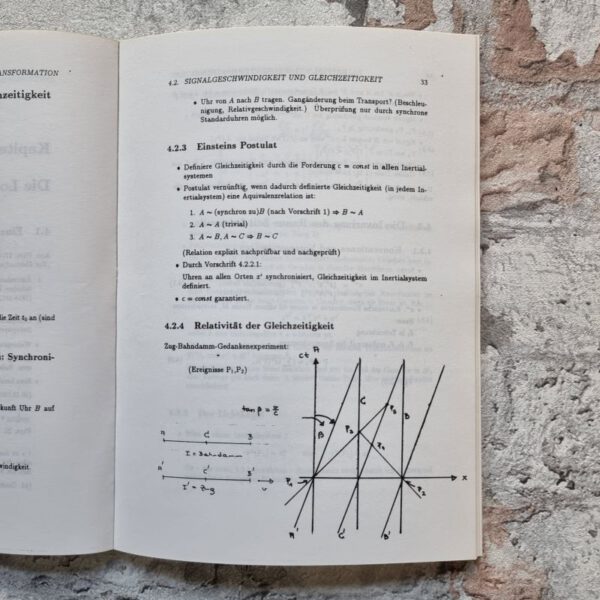 ANSFORMATION
hzeitigkeit
die Zeit t₀ an (sind
: Synchroni-
kunft Uhr B auf
windigkeit.
4.2. SIGNALGESCHWINDIGKEIT UND GLEICHZEITIGKEIT 33
• Uhr von A nach B tragen. Gangänderung beim Transport? (Beschleu-
nigung, Relativgeschwindigkeit.) Überprüfung nur durch synchrone
Standarduhren möglich.
4.2.3 Einsteins Postulat
• Definiere Gleichzeitigkeit durch die Forderung c = const in allen Inertial-
systemen
• Postulat vernünftig, wenn dadurch definierte Gleichzeitigkeit (in jedem In-
ertialsystem) eine Äquivalenzrelation ist:
1. A ∼ (synchron zu)B (nach Vorschrift 1) ⇒ B ∼ A
2. A ∼ A (trivial)
3. A ∼ B, A ∼ C ⇒ B ∼ C
(Relation explizit nachprüfbar und nachgeprüft)
• Durch Vorschrift 4.2.2.1:
Uhren an allen Orten xⁱ synchronisiert, Gleichzeitigkeit im Inertialsystem
definiert.
• c = const garantiert.
4.2.4 Relativität der Gleichzeitigkeit
Zug-Bahndamm-Gedankenexperiment:
(Ereignisse P₁,P₂)
tan β = v/c
A C B
I = Bahndamm
A' C' B'
I' = Zug v
ct A
C
B
β
P₃
P₁ P₂
x
A' C' B'